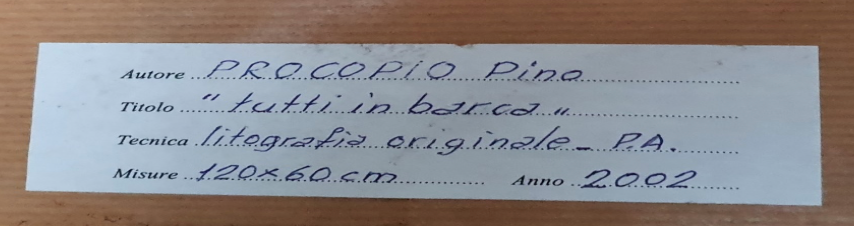 Autore PROCOPIO Pino
Titolo "tutti in barca"
Tecnica litografia originale - P.A.
Misure 120x60 cm Anno 2002